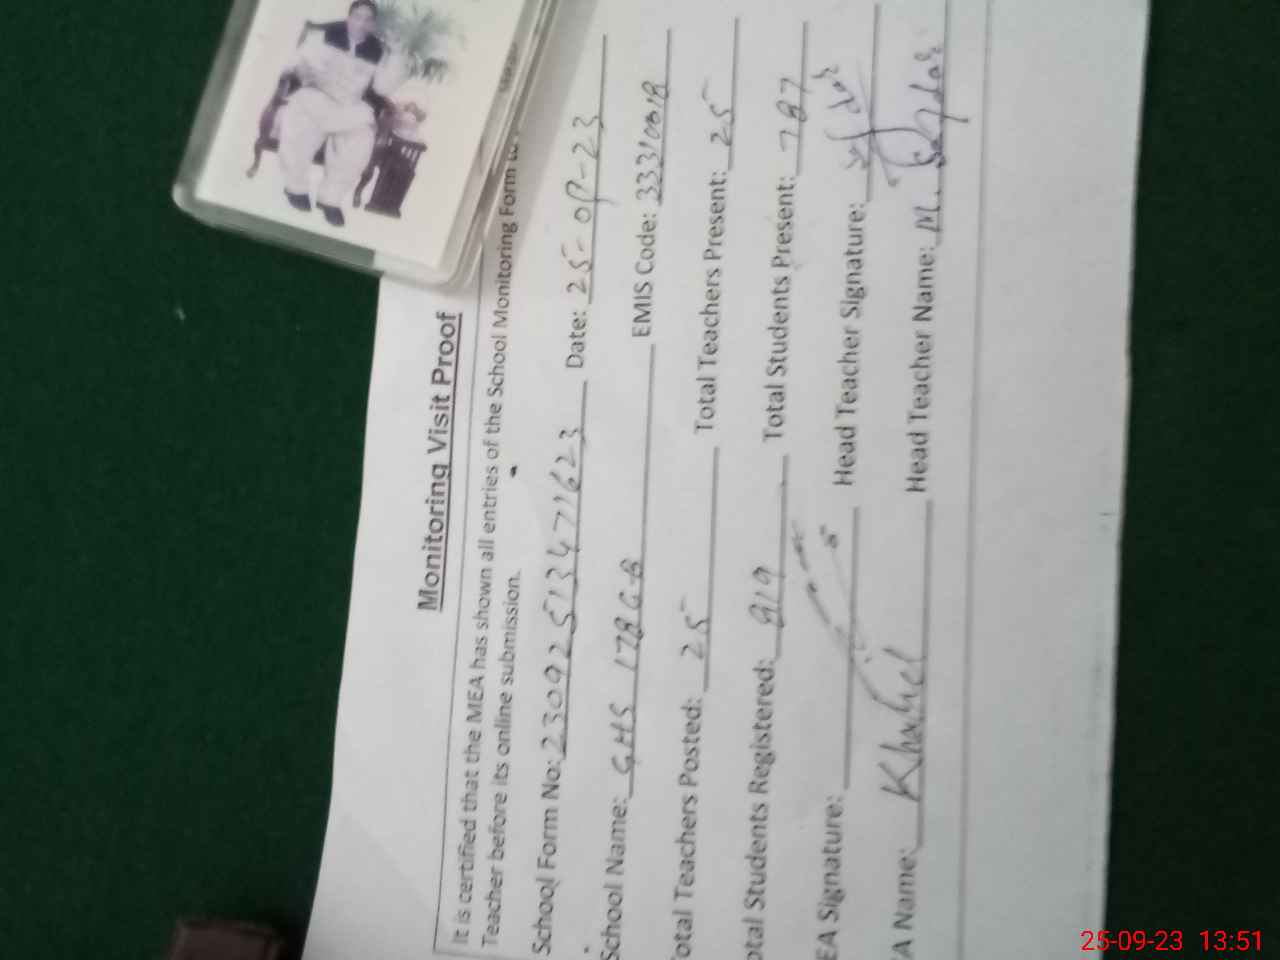 Monitoring Visit Proof
It is certified that the MEA has shown all entries of the School Monitoring Form to
Teacher before its online submission.
School Form No: 23092513471623 Date: 25-09-23
School Name: GHS 178 GB EMIS Code: 33310018
otal Teachers Posted: 25 Total Teachers Present: 25
otal Students Registered: 819 Total Students Present: 787
EA Signature: Head Teacher Signature:
A Name: Khalil Head Teacher Name: M.
25-09-23 13:51